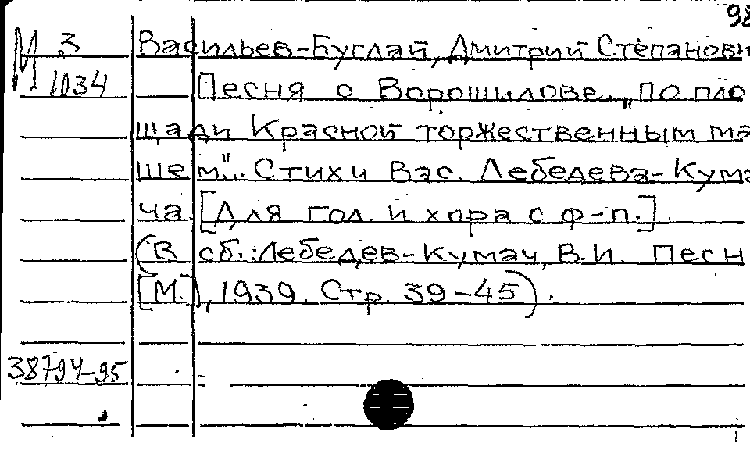 98
М 3 Васильев-Буглай, Дмитрий Степанови
1034 Песня о Ворошилове. „По пло
щади Красной торжественным ма
шем“. Стихи Вас. Лебедева-Кума
ча. [Для гол. и хора с ф-п.]
(В сб.: Лебедев-Кумач, В.И. Песн
[М.], 1939. Стр. 39-45).
38794-95